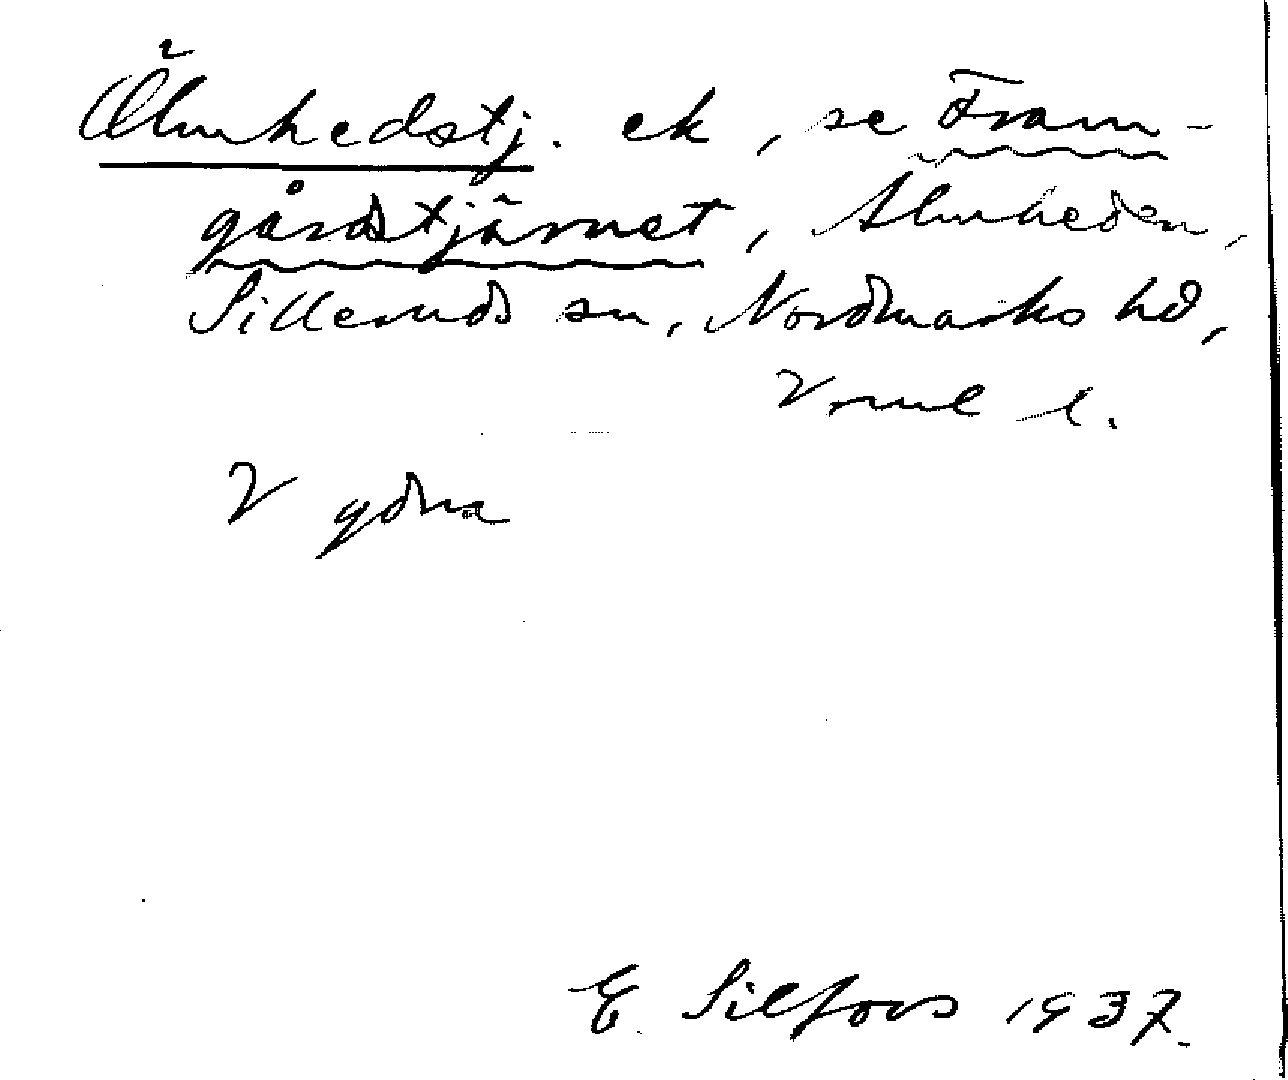 Ölmhedstj. ek, se Fram-
gårdstjärnet, Älmheden,
Silleruds sn, Nordmarks hd,
Vrml l.
V gdna
E. Silfors 1937.